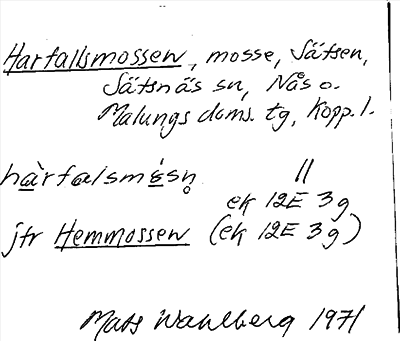 Harfallsmossen, mosse, Sätsen,
Sätsnäs sn, Nås o.
Malungs doms. tg, Kopp. l.
hàrfalsmósn̥ ||
ek 12E 3g
jfr Hemmossen (ek 12E 3g)
Mats Wahlberg 1971